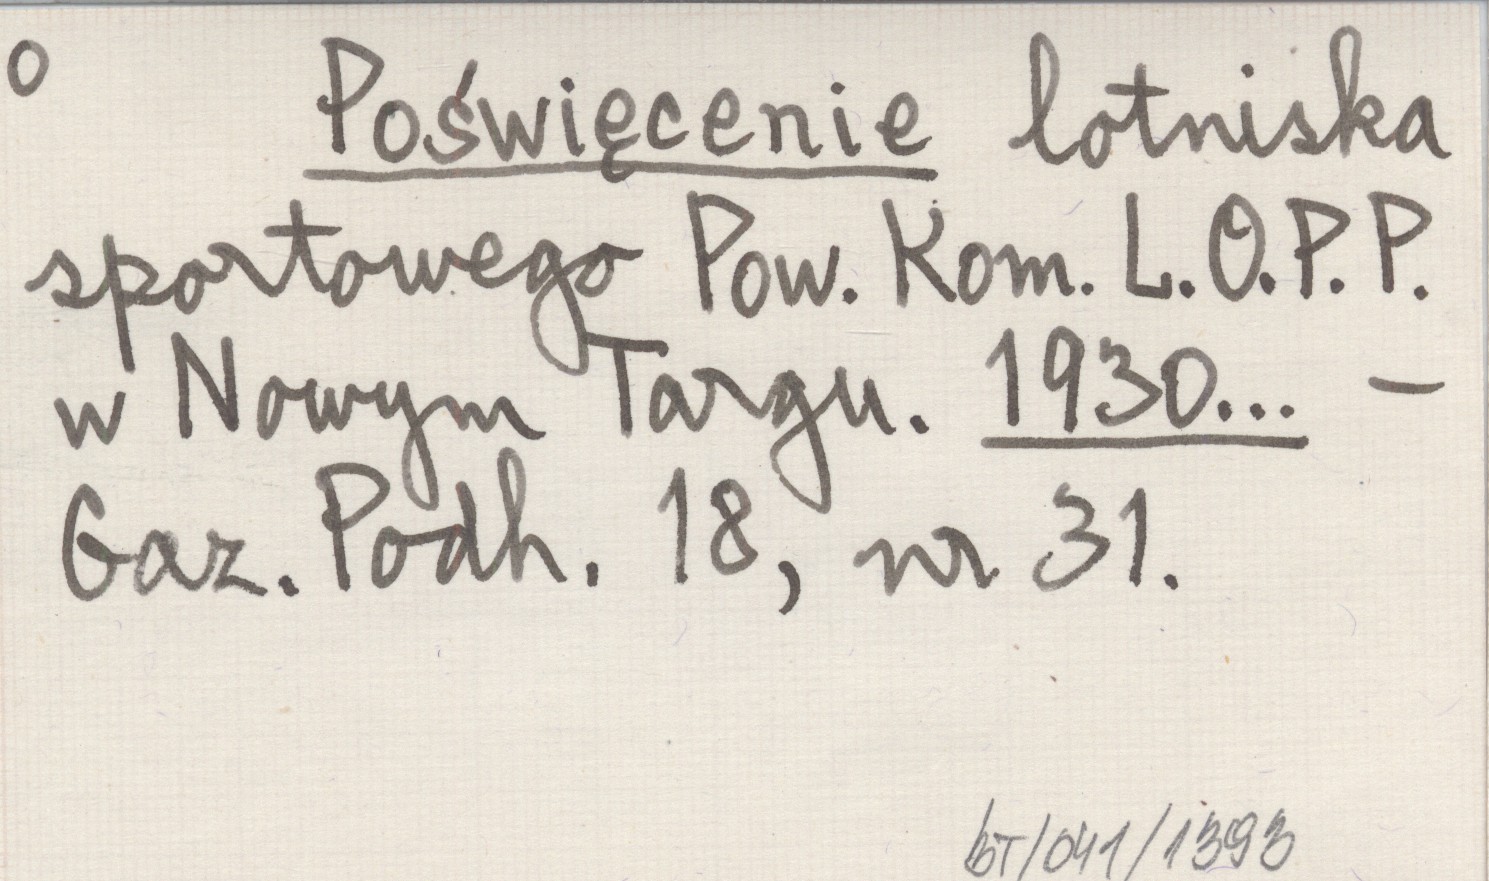 o Poświęcenie lotniska
sportowego Pow. Kom. L.O.P.P.
w Nowym Targu. 1930... –
Gaz. Podh. 18, nr 31.
bT/041/1393